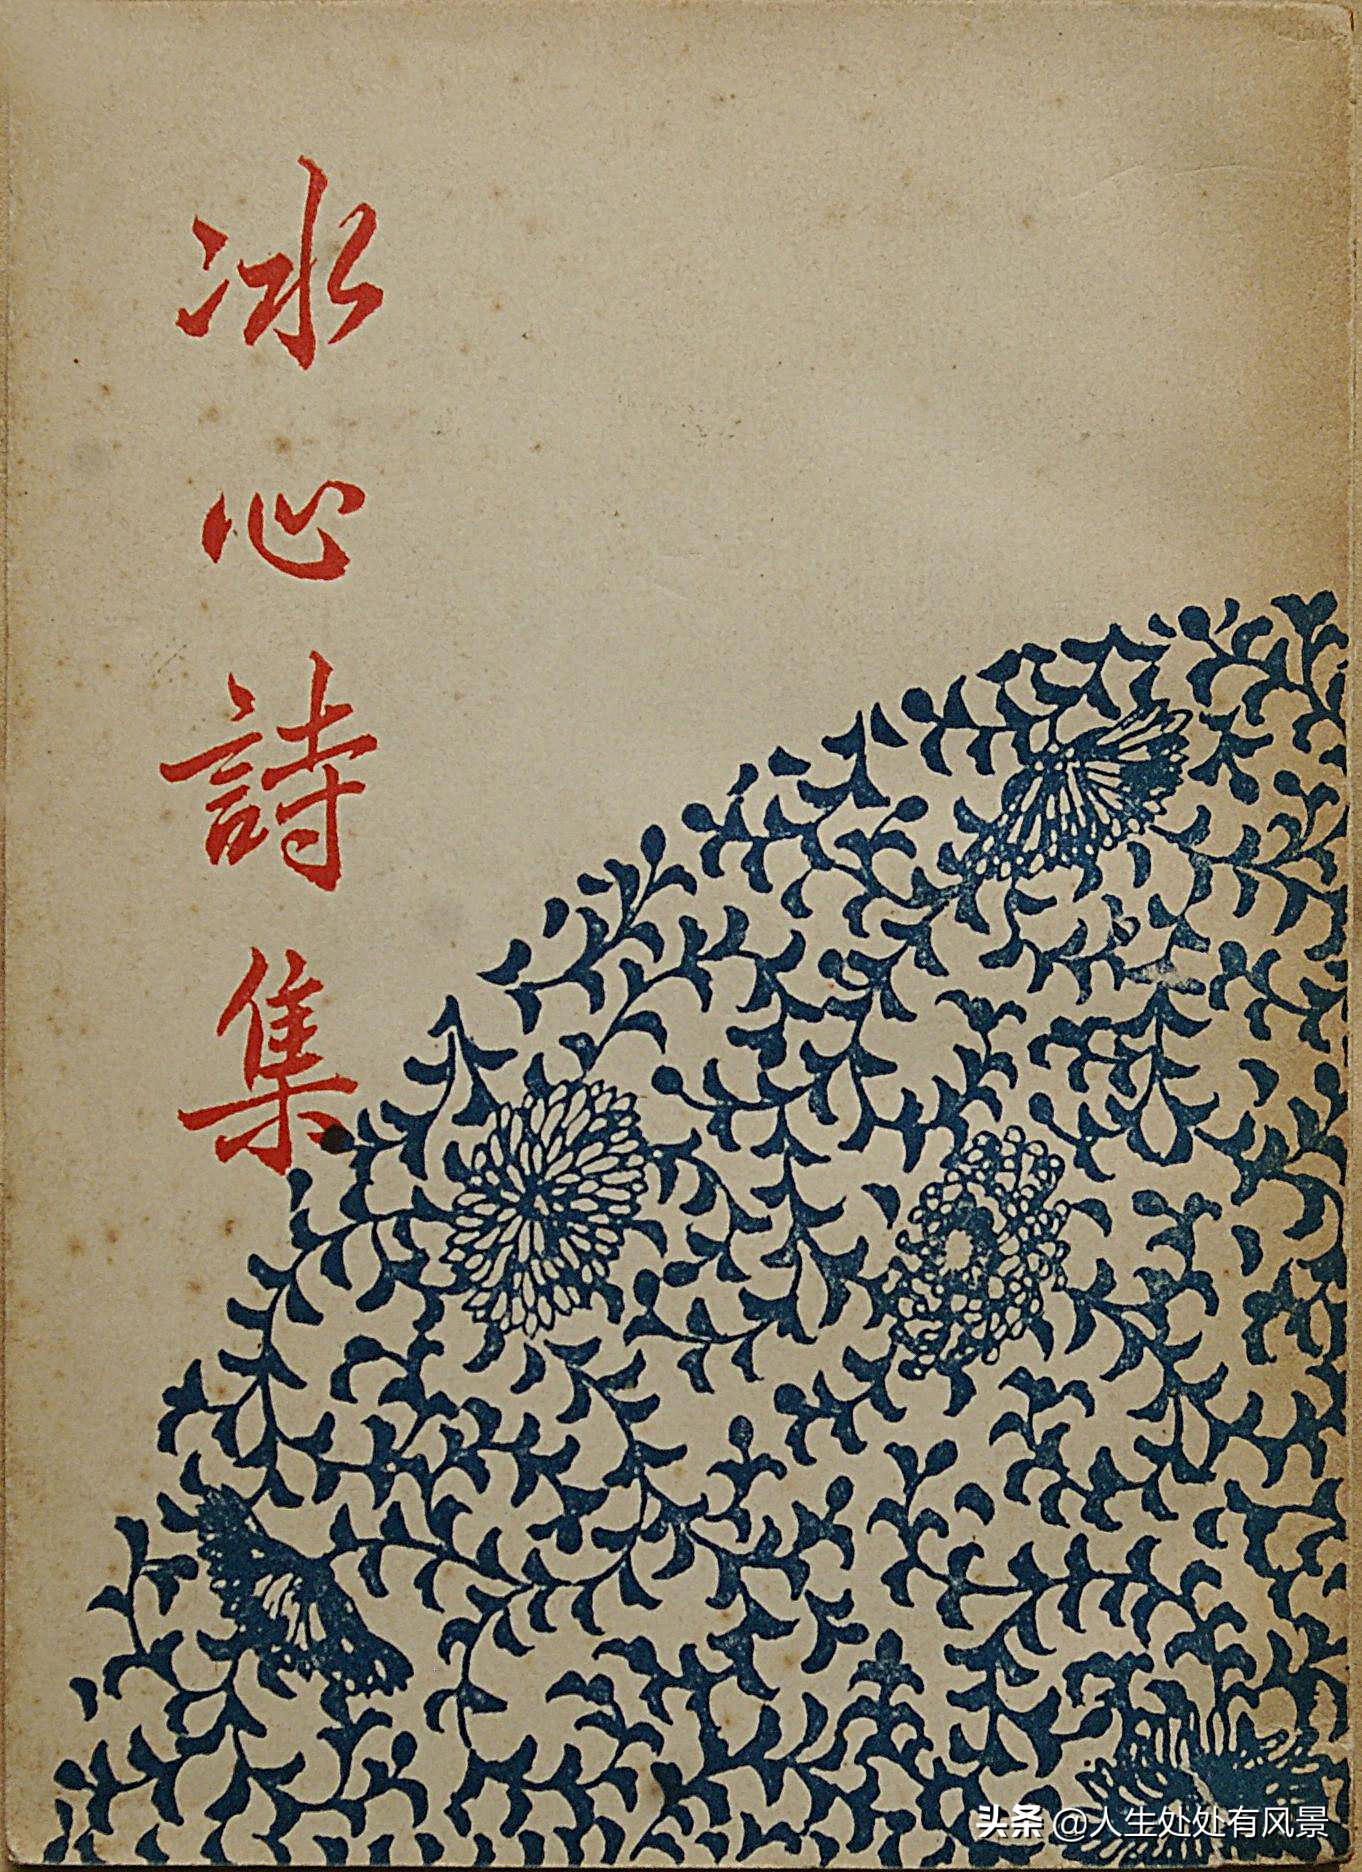 冰心詩集
头条 @人生处处有风景